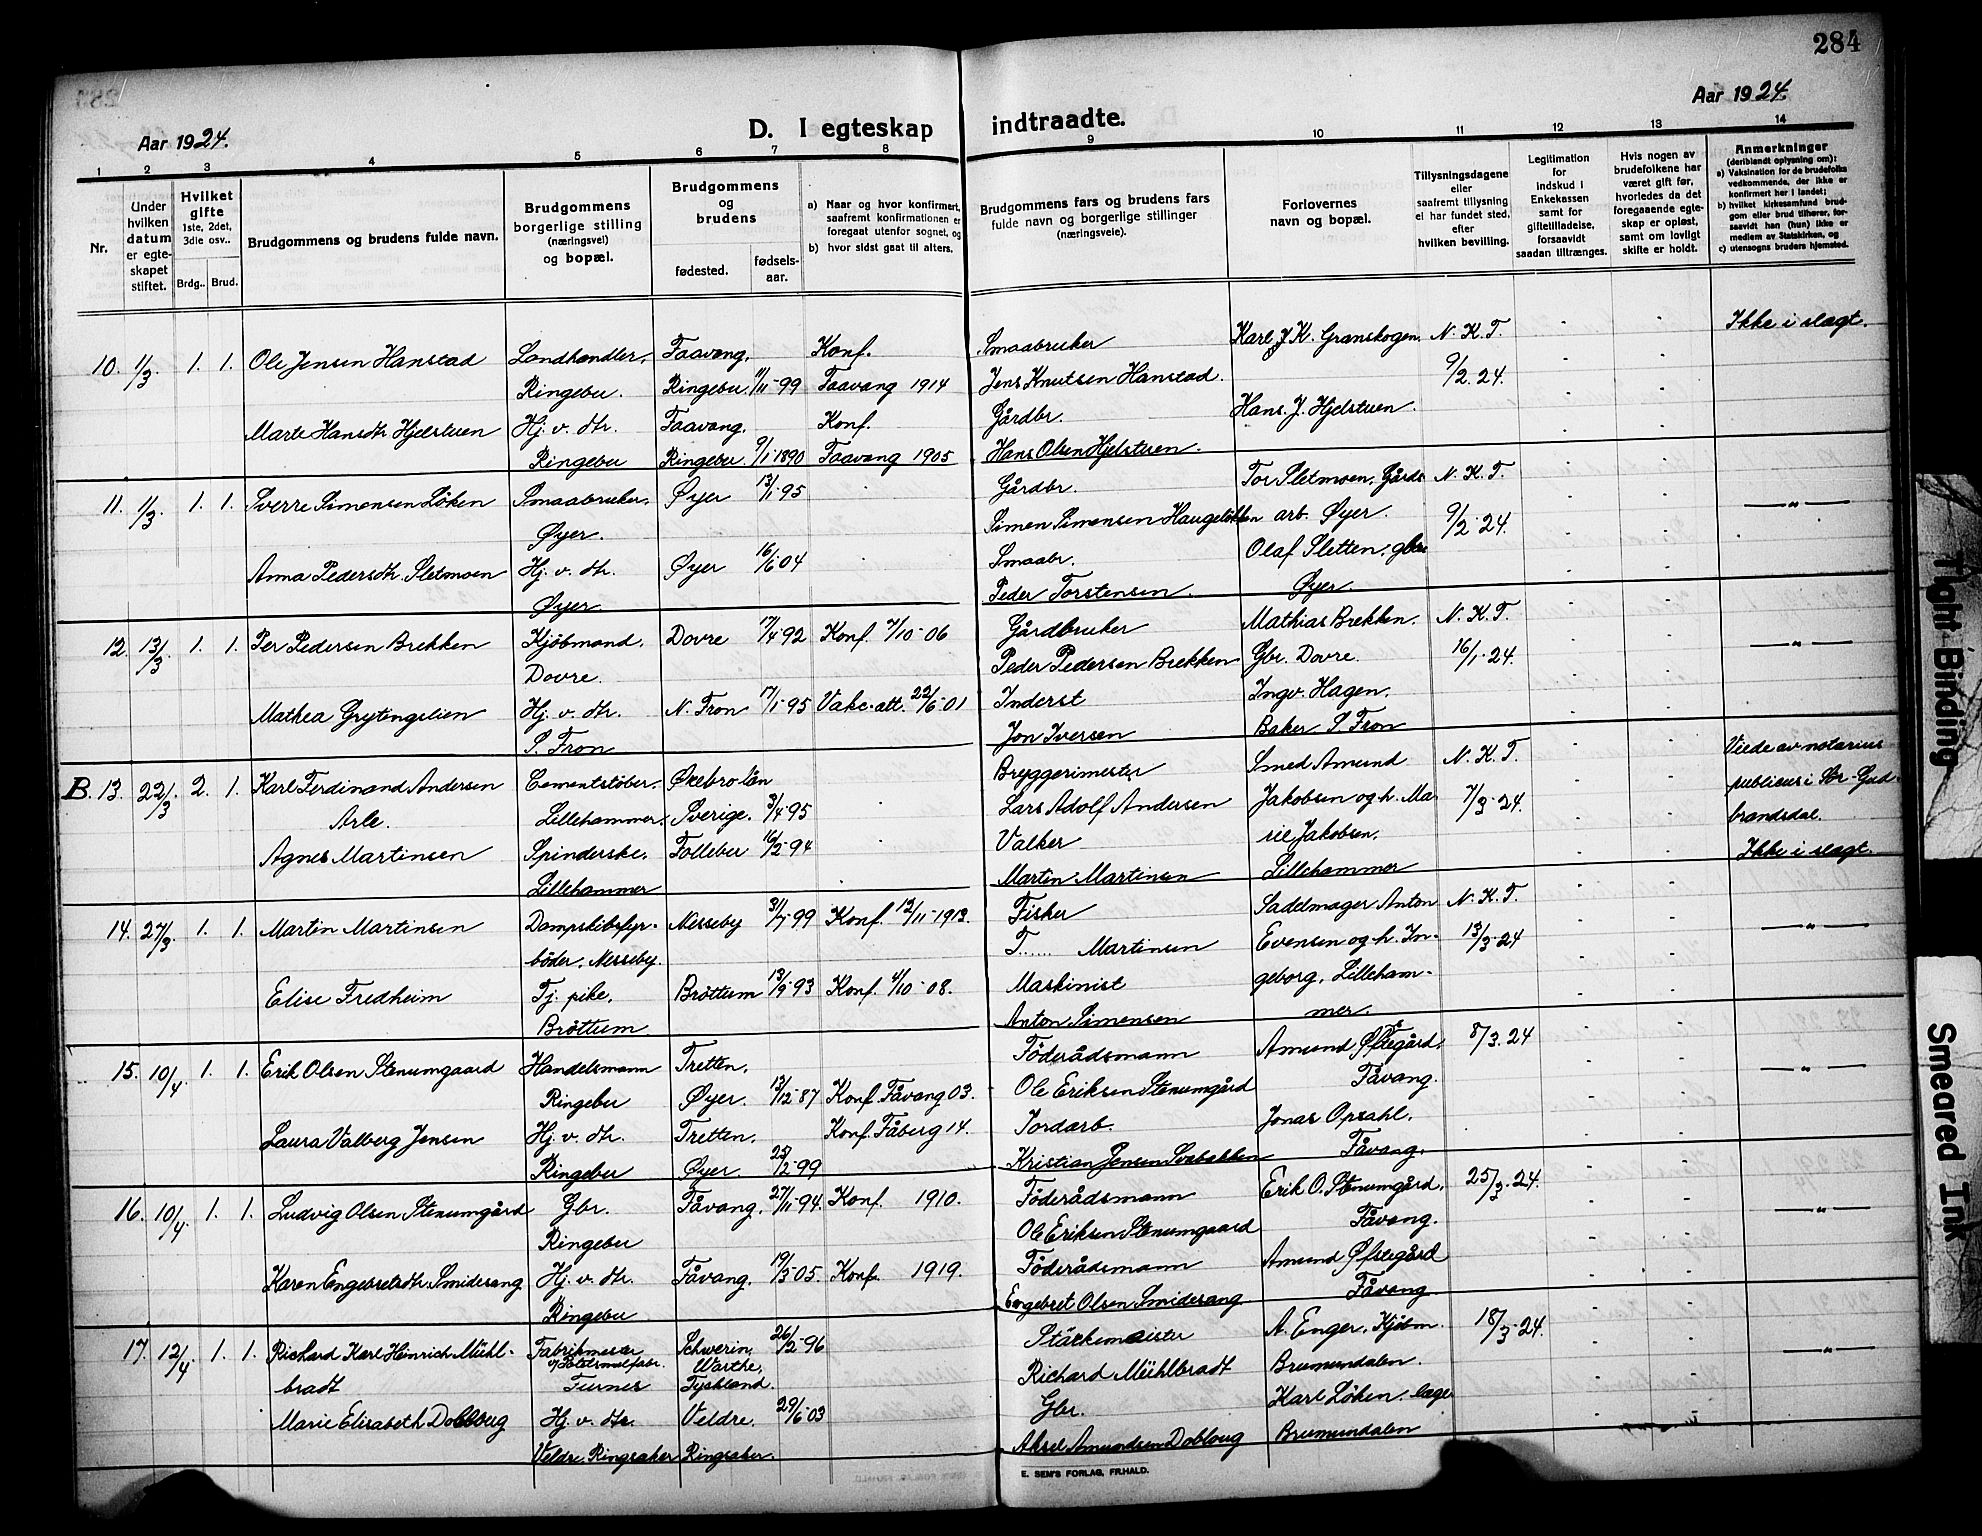 284
Aar 1924.
D. I egteskap indtraadte.
Aar 1924.
1 2 3 4 5 6 7 8 9 10 11 12 13 14
Nr.
Under hvilken datum er egteskapet stiftet.
Hvilket gifte 1ste, 2det, 3die osv..
Brdg.. Brud.
Brudgommens og brudens fulde navn.
Brudgommens borgerlige stilling (næringsvei) og bopæl.
Brudgommens og brudens
fødested. fødselsaar.
a) Naar og hvor konfirmert, saafremt konfirmationen er foregaat utenfor sognet, og
b) hvor sidst gaat til alters.
Brudgommens fars og brudens fars fulde navn og borgerlige stillinger (næringsveie).
Forlovernes navn og bopæl.
Tillysningsdagene eller saafremt tillysning ei har fundet sted, efter hvilken bevilling.
Legitimation for indskud i Enkekassen samt for giftetilladelse, forsaavidt saadan tiltrænges.
Hvis nogen av brudefolkene har været gift før, hvorledes da det foregaaende egteskap er opløst, samt om lovligt skifte er holdt.
Anmerkninger (deriblandt oplysning om): a) Vaksination for de brudefolks vedkommende, der ikke er konfirmert her i landet; b) hvilket kirkesamfund brudgom eller brud tilhører, forsaavidt han (hun) ikke er medlem av Statskirken, og c) utensogns bruders hjemsted.
10. 1/3. 1. 1. Ole Jensen Hanstad Landhandler. Faavang. Konf. Smaabruker Karl J K. Granskogen. N. K. T. Ikke i slægt.
Ringebu. Ringebu. 11/11-99 Faavang 1914 Jens Knutsen Hanstad. 9/2. 24.
Marte Hansdtr Hjelstuen Hj. v. dtr. Faavang. Konf. Gårdbr. Hans. J. Hjelstuen.
Ringebu Ringebu. 9/1-1890 Faavang 1905 Hans Olsen Hjelstuen.
11. 1/3 1. 1. Sverre Simensen Løken Smaabruker. Øyer 13/1-95 Gårdbr. Tor Sletmoen, Gårds N. K. T. —"—
Øyer. Simen Simensen Haugeløkken arb. Øyer. 9/2-24.
Anna Pedersdtr. Sletmoen Hj. v. dtr. Øyer 16/6 04 Smaabr. Olaf Sletten, gbr.
Øyer Peder Torstensen. Øyer.
12. 13/3 1. 1. Per Pedersen Brekken Kjöbmand. Dovre 17/4-92 Konf. 7/10-06 Gårdbruker Mathias Brekken. N. K. T. —"—
Dovre. Peder Pedersen Brekken Gbr. Dovre. 16/1-24.
Mathea Grytingslien Hj. v. dtr. N. Fron 17/1-95 Vakc.att. 22/6-01 Inderst Ingv. Hagen.
S. Fron Jon Iversen Baker S. Fron
B. 13. 22/3 2. 1. Karl Ferdinand Andersen Cementstöber. Ørebro län Bryggerimester Smed Amund N. K. T. Viede av notarius
Arle. Lillehammer. Sverige. 3/4-95 Lars Adolf Andersen Jakobsen og h. Ma- 7/3-24. publicus i Sör-Gud-
Agnes Martinsen Spinderske. Follebu 16/2-94 Valker rie Jakobsen. brandsdal.
Lillehammer Martin Martinsen Lillehammer Ikke i slægt.
14. 27/3. 1. 1. Martin Martinsen Dampskibsfyr- Nesseby 31/7-99 Konf. 12/11-1913. Fisker Sadelmager Anton N. K. T. —"—
böder. Nesseby. T...... Martinsen Evensen og h. In- 13/3-24
Elise Fredheim Tj. pike. Bröttum 13/9-93 Konf. 4/10-08. Maskinist geborg, Lilleham-
Bröttum Anton Simensen mer.
15. 10/4 1. 1. Erik Olsen Stenumgaard Handelsmann Tretten. Föderådsmann Amund Øfstegård. 8/3. 24
Ringebu Øyer. 13/12-87 Konf. Fåvang 03. Ole Eriksen Stenumgård Fåvang. —"—
Laura Valborg Jensen Hj. v. dtr. Tretten. Konf. Fåberg 14. Jordarb. Jonas Opsahl.
Ringebu Øyer. 25/2-99 Kristian Jensen Svebakken Fåvang.
16. 10/4 1. 1. Ludvig Olsen Stenumgård Gbr. Fåvang. 27/11-94 Konf. 1910. Föderådsmann Erik O. Stenumgård. 25/3. 24.
Ringebu Ole Eriksen Stenumgaard Fåvang. —"—
Karen Engebretsdtr. Smidesang Hj. v. dtr. Fåvang. 19/3-05. Konf. 1919. Föderådsmann Amund Øfstegård
Ringebu Engebret Olsen Smidesang Fåvang
17. 12/4 1. 1. Richard Karl Heinrich Mühl- Fabrikmester Schwerin, 26/2-96 Stärkemeister A. Enger. Kjöbm. 18/3-24.
bradt v/Potetsmelfabr. Warthe, Richard Mühlbradt Brumundalen. —"—
Furnes Tyskland.
Marie Elisabeth Dobloug Hj. v. dtr. Veldre. 29/6-03 Gbr. Karl Løken. læge
Veldre, Ringsaker Ringsaker. Aksel Amundsen Dobloug Brumundalen
E. SEM'S FORLAG, FR.HALD.
Tight Binding
Smeared Ink